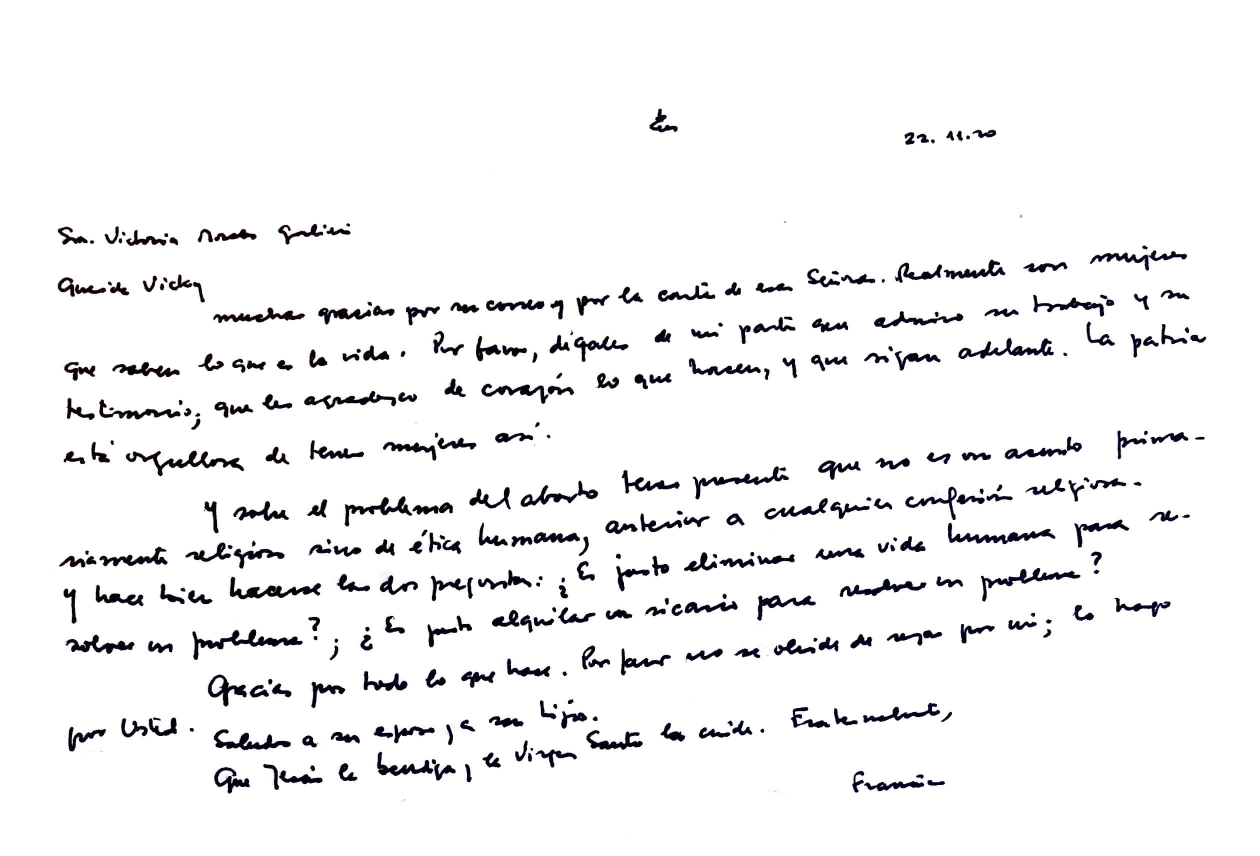 22.11.20
Sra. Victoria Morales Gorleri
Querida Vicky
muchas gracias por su correo y por la carta de esas Señoras. Realmente son mujeres
que saben lo que es la vida. Por favor, dígales de mi parte que admiro su trabajo y su
testimonio; que les agradezco de corazón lo que hacen, y que sigan adelante. La patria
está orgullosa de tener mujeres así.
Y sobre el problema del aborto tener presente que no es un asunto prima-
riamente religioso sino de ética humana, anterior a cualquier confesión religiosa.
Y hace bien hacerse las dos preguntas: ¿Es justo eliminar una vida humana para re-
solver un problema?; ¿Es justo alquilar un sicario para resolver un problema?
Gracias por todo lo que hace. Por favor no se olvide de rezar por mi; lo hago
por Usted. Saludos a su esposo y a sus hijos.
Que Jesús la bendiga y la Virgen Santa la cuide. Fraternalmente,
Francisco